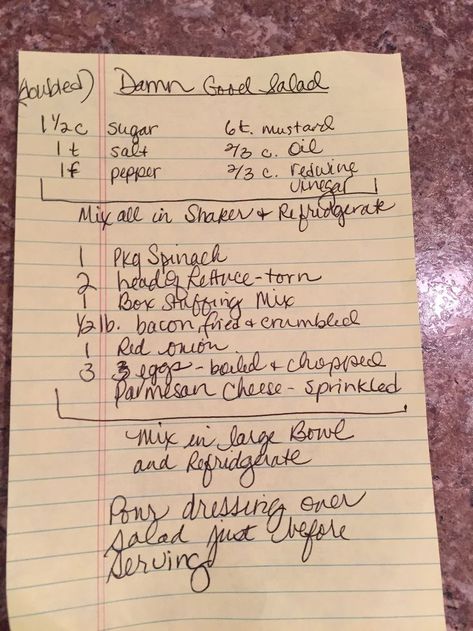 (doubled) Damn Good Salad
1 1/2 c sugar 6 t. mustard
1 t salt 2/3 c. oil
1 t pepper 2/3 c. redwine
vinegar
Mix all in Shaker & Refridgerate
1 Pkg Spinach
2 head of lettuce - torn
1 Box Stuffing Mix
1/2 lb. bacon, fried & crumbled
1 Red onion
3 3 eggs - boiled & chopped
Parmesan Cheese - sprinkled
Mix in large Bowl
and Refridgerate
Pour dressing over
salad just before
serving